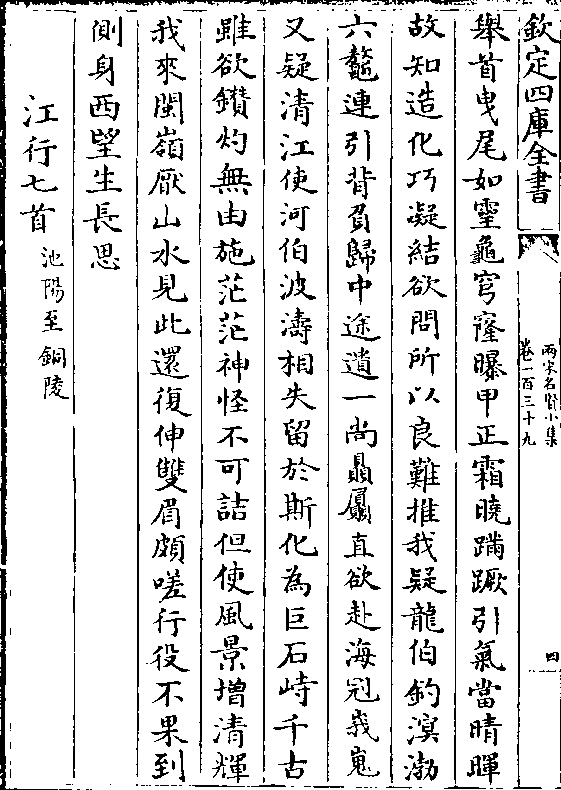 欽定四庫全書
兩宋名賢小集
卷一百三十九
四
舉首曳尾如靈龜穹窿曝甲正霜曉蹣蹶引氣當晴暉
故知造化巧凝結欲問所以良難推我疑龍伯釣溟渤
六鼇連引背負歸中途遺一尚贔屭直欲赴海冠峩嵬
又疑清江使河伯波濤相失留於斯化為巨石峙千古
雖欲鑽灼無由施茫茫神怪不可詰但使風景增清輝
我來閩嶺厭山水見此還復伸雙眉頗嗟行役不果到
側身西望生長思
江行七首池陽至銅陵